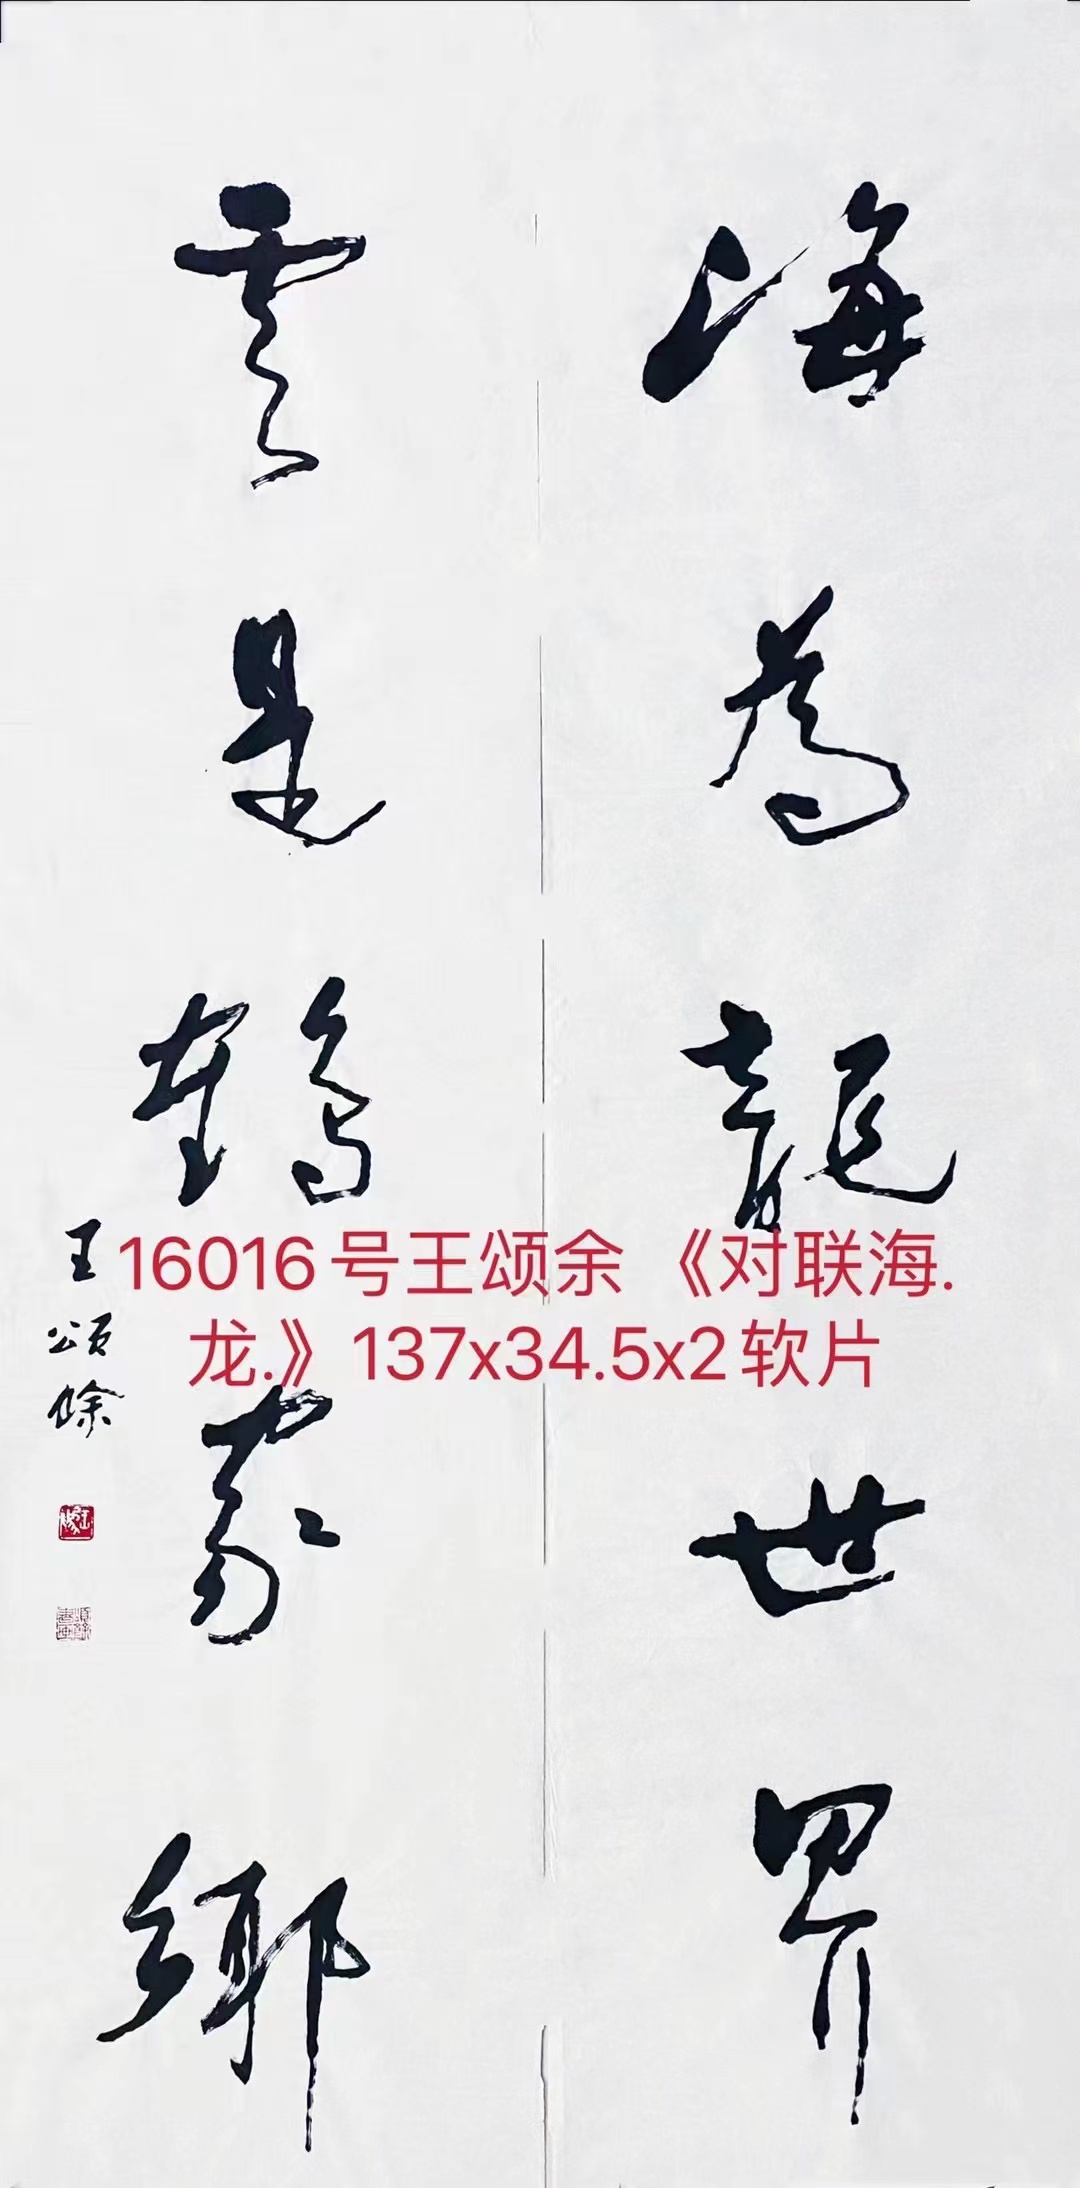 海為龍世界
雲是鶴家鄉
王頌餘
16016号王颂余 《对联海.
龙.》137x34.5x2软片